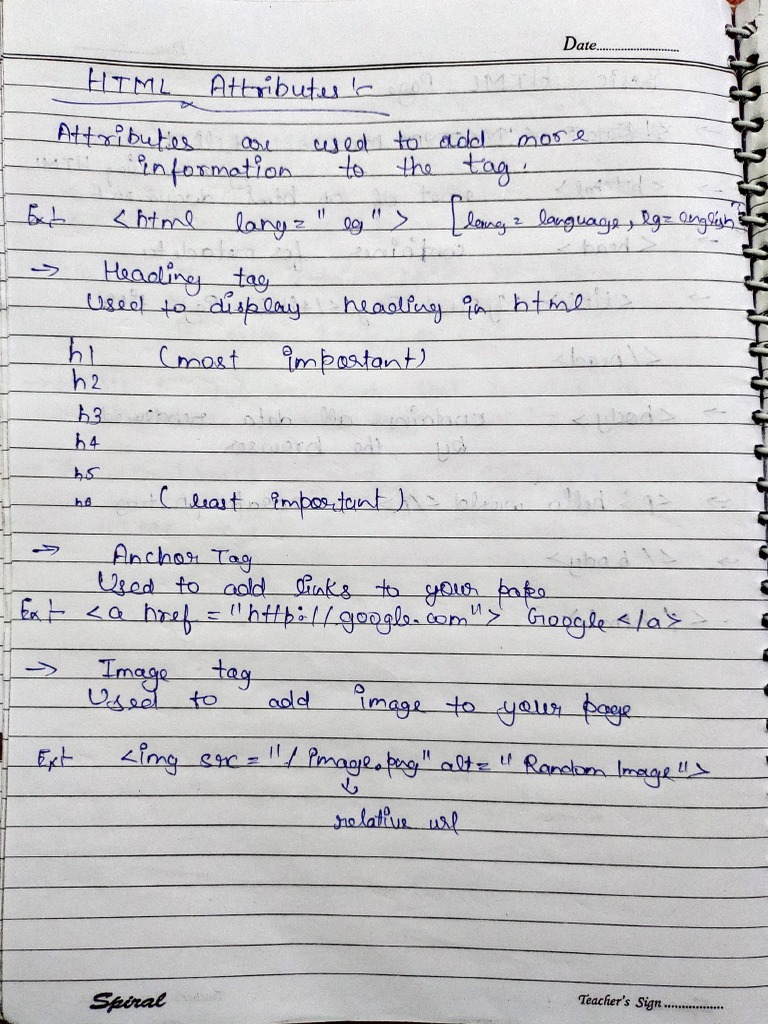 Date
HTML Attributes :-
Attributes are used to add more
information to the tag.
Ex:- <html lang = "eg"> [lang = language, eg = english]
→ Heading tag
Used to display heading in html
h1 (most important)
h2
h3
h4
h5
h6 (least important)
→ Anchor Tag
Used to add links to your page
Ex:- <a href = "http://google.com"> Google </a>
→ Image tag
Used to add image to your page
Ex:- <img src = "/image.png" alt = "Random Image">
↓
relative url
Spiral
Teacher's Sign